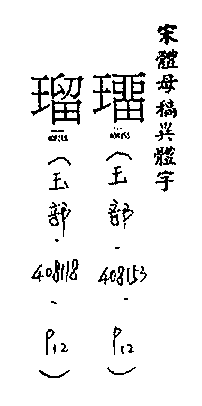 宋體母稿異體字
璢(王部-408153-P12)
瑠(玉部-408118-P12)